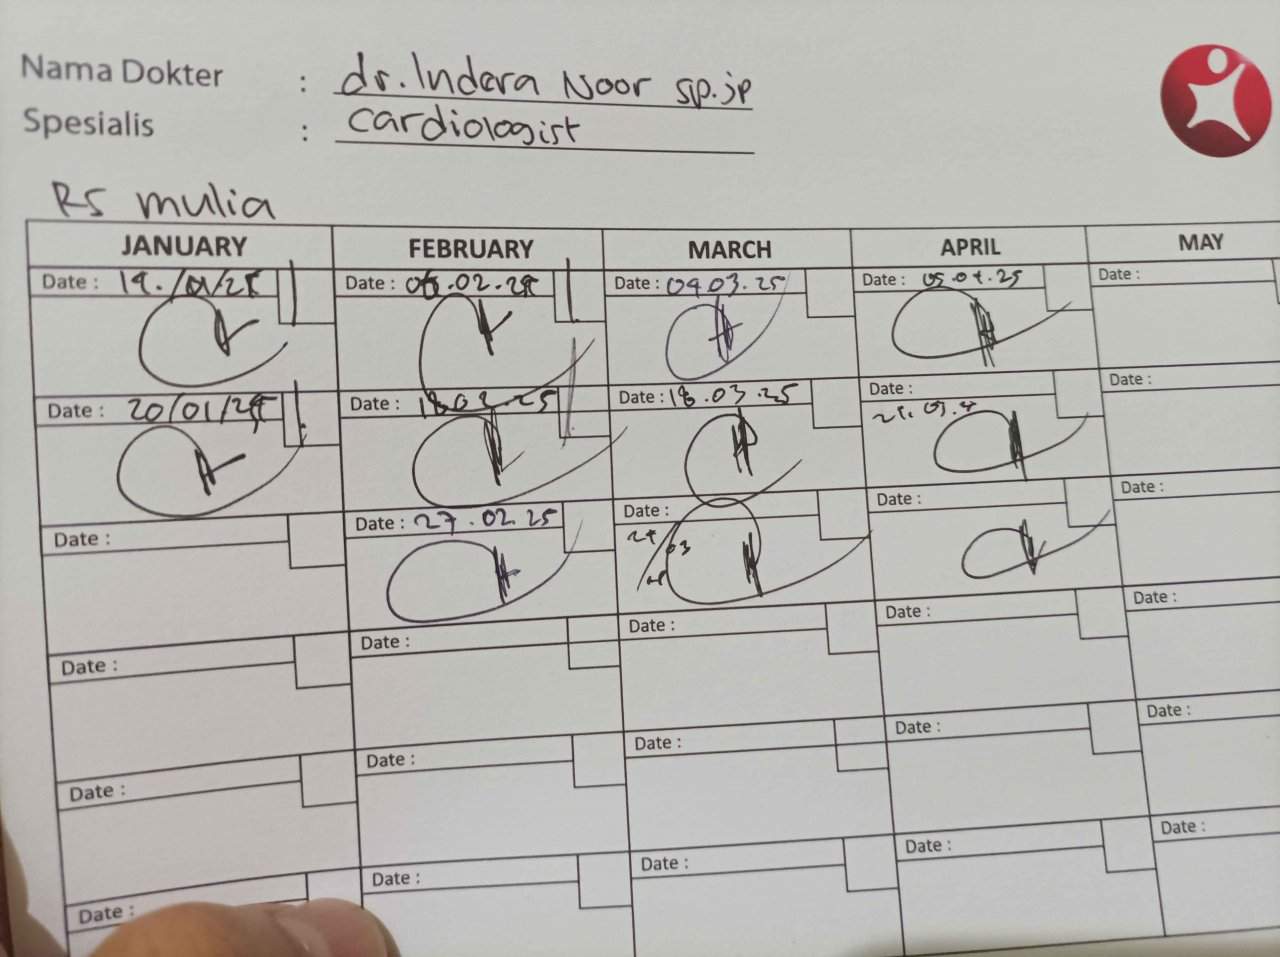 Nama Dokter : dr. Indera Noor sp.jp
Spesialis : cardiologist
RS mulia
JANUARY FEBRUARY MARCH APRIL MAY
Date : Date : Date : 04 03. 25 Date : 05.04.25 Date :
Date : Date : 18 02. 25 Date : 18.03.25 Date : Date :
Date : Date : 27.02.25 Date : Date : Date :
Date : Date : Date : Date : Date :
Date : Date : Date : Date : Date :
Date : Date : Date : Date : Date :